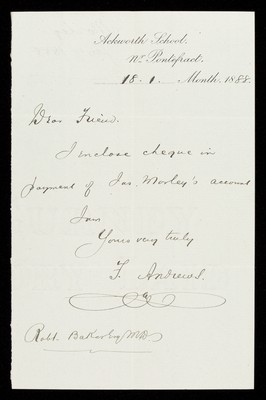 Ackworth School,
Nr. Pontefract.
18 . 1 . Month, 1888.
Dear Friend.
I enclose cheque in
payment of Jas. Morley's account
I am
Yours very truly
F. Andrews.
Robt. Baker Esq MD